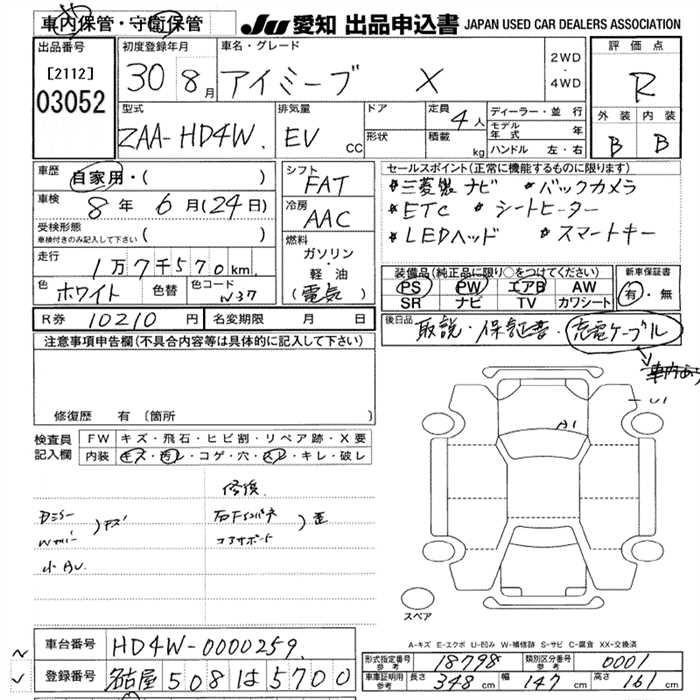 車内保管・守衛保管
JU 愛知 出品申込書 JAPAN USED CAR DEALERS ASSOCIATION
出品番号
[2112]
03052
初度登録年月
30 8月
車名・グレード
アイミーブ X
2WD
・
4WD
評価点
R
外装 内装
B B
型式
ZAA-HD4W
排気量
EV cc
ドア
形状
定員
4人
積載
kg
ディーラー・並行
モデル年式 年
ハンドル 左・右
車歴
自家用・( )
車検
8年 6月(24日)
受検形態
車検付きのみ記入して下さい ( )
走行
1万7千570km
色 ホワイト 色替 色コード W37
シフト
FAT
冷房
AAC
燃料
ガソリン
・
軽・油
(電気)
セールスポイント(正常に機能するものに限ります)
*三菱製ナビ *バックカメラ
*ETC *シートヒーター
*LEDヘッド *スマートキー
装備品(純正品に限り○をつけてください)
PS PW エアB AW
SR ナビ TV カワシート
新車保証書
有・無
R券 10210円 名変期限 月 日
後日品
取説・保証書・充電ケーブル
車内あり
注意事項申告欄(不具合内容等は具体的に記入して下さい)
修復歴 有〔箇所
検査員
記入欄
FW キズ・飛石・ヒビ割・リペア跡・X要
内装 キズ・汚レ・コゲ・穴・スレ・キレ・破レ
修復
歪
小AU
A1
スペア
A-キズ E-エクボ U-凹み W-補修跡 S-サビ C-腐食 XX-交換済
車台番号 HD4W-0000259
登録番号 名古屋 508 は 5700
形式指定番号
参考
18798
類別区分番号
参考
0001
車庫証明用
参考
長さ 348cm 幅 147cm 高さ 161cm